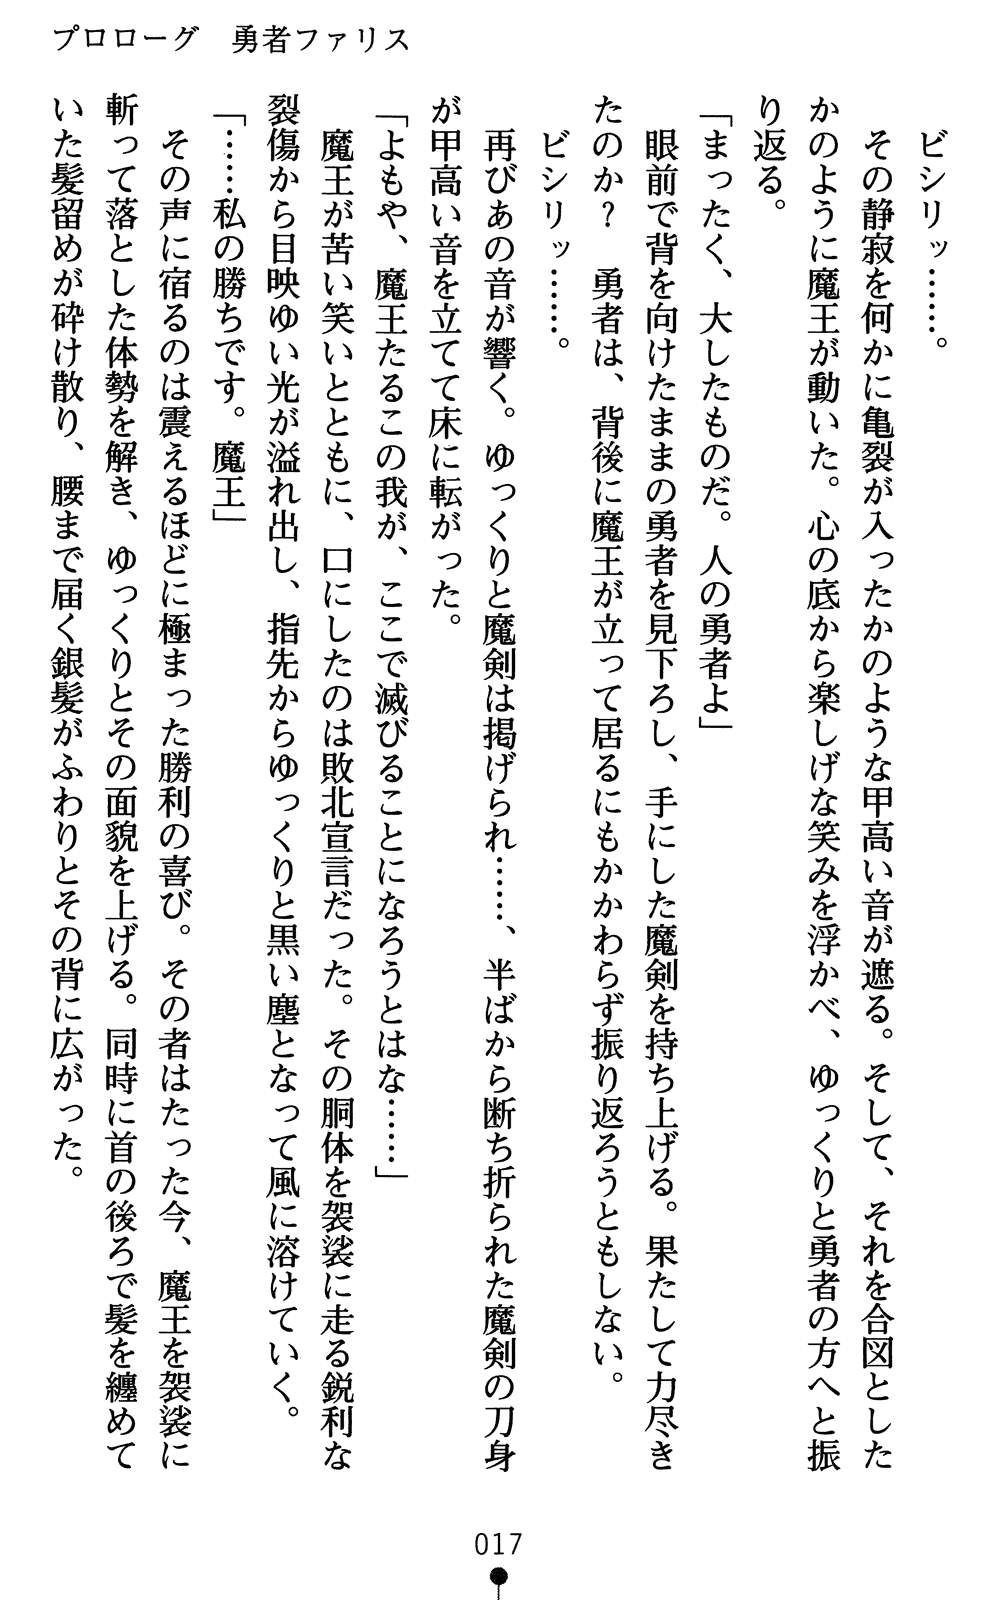 プロローグ　勇者ファリス
　ビシリッ……。
　その静寂を何かに亀裂が入ったかのような甲高い音が遮る。そして、それを合図とした
かのように魔王が動いた。心の底から楽しげな笑みを浮かべ、ゆっくりと勇者の方へと振
り返る。
「まったく、大したものだ。人の勇者よ」
　眼前で背を向けたままの勇者を見下ろし、手にした魔剣を持ち上げる。果たして力尽き
たのか？　勇者は、背後に魔王が立って居るにもかかわらず振り返ろうともしない。
　ビシリッ……。
　再びあの音が響く。ゆっくりと魔剣は掲げられ……、半ばから断ち折られた魔剣の刀身
が甲高い音を立てて床に転がった。
「よもや、魔王たるこの我が、ここで滅びることになろうとはな……」
　魔王が苦い笑いとともに、口にしたのは敗北宣言だった。その胴体を袈裟に走る鋭利な
裂傷から目映ゆい光が溢れ出し、指先からゆっくりと黒い塵となって風に溶けていく。
「……私の勝ちです。魔王」
　その声に宿るのは震えるほどに極まった勝利の喜び。その者はたった今、魔王を袈裟に
斬って落とした体勢を解き、ゆっくりとその面貌を上げる。同時に首の後ろで髪を纏めて
いた髪留めが砕け散り、腰まで届く銀髪がふわりとその背に広がった。
017